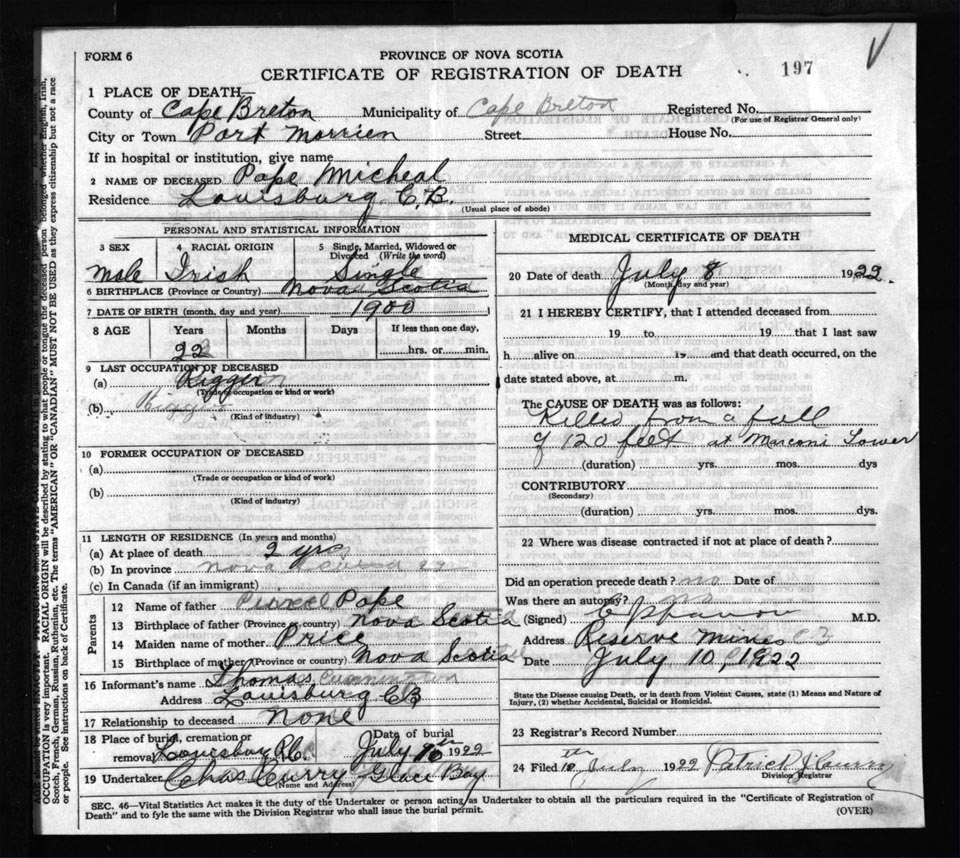 FORM 6
PROVINCE OF NOVA SCOTIA
CERTIFICATE OF REGISTRATION OF DEATH
197
1 PLACE OF DEATH—
County of Cape Breton Municipality of Cape Breton Registered No.
(For use of Registrar General only)
City or Town Port Morrien Street House No.
If in hospital or institution, give name
2 NAME OF DECEASED Pope Micheal
Residence Louisburg C.B.
(Usual place of abode)
PERSONAL AND STATISTICAL INFORMATION
3 SEX 4 RACIAL ORIGIN 5 Single, Married, Widowed or Divorced (Write the word)
Male Irish Single
6 BIRTHPLACE (Province or Country) Nova Scotia
7 DATE OF BIRTH (month, day and year) 1900
8 AGE Years Months Days If less than one day,
22 hrs. or min.
9 LAST OCCUPATION OF DECEASED
(a) Rigger
(Trade or occupation or kind or work)
(b)
(Kind of industry)
10 FORMER OCCUPATION OF DECEASED
(a)
(Trade or occupation or kind or work)
(b)
(Kind of industry)
11 LENGTH OF RESIDENCE (In years and months)
(a) At place of death 2 yrs
(b) In province Nova Scotia
(c) In Canada (if an immigrant)
Parents
12 Name of father Pope
13 Birthplace of father (Province or country) Nova Scotia
14 Maiden name of mother Price
15 Birthplace of mother (Province or country) Nova Scotia
16 Informant's name Thomas Cunnington
Address Louisburg CB
17 Relationship to deceased None
18 Place of burial, cremation or removal Date of burial
Louisburg R.C. July 10 1922
19 Undertaker Chas Curry Glace Bay
(Name and Address)
MEDICAL CERTIFICATE OF DEATH
20 Date of death July 8 1922.
(Month, day and year)
21 I HEREBY CERTIFY, that I attended deceased from
19 to 19 that I last saw
h alive on 19 and that death occurred, on the
date stated above, at m.
The CAUSE OF DEATH was as follows:
Killed from a fall
of 120 feet at Marconi Tower
(duration) yrs. mos. dys
CONTRIBUTORY
(Secondary)
(duration) yrs. mos. dys.
22 Where was disease contracted if not at place of death?
Did an operation precede death? no Date of
Was there an autopsy? no
(Signed) M.D.
Address Reserve Mines CB
Date July 10, 1922
State the Disease causing Death, or in death from Violent Causes, state (1) Means and Nature of
Injury, (2) whether Accidental, Suicidal or Homicidal.
23 Registrar's Record Number
24 Filed 10th July 1922 Patrick J Curry
Division Registrar
SEC. 46—Vital Statistics Act makes it the duty of the Undertaker or person acting as Undertaker to obtain all the particulars required in the "Certificate of Registration of
Death" and to fyle the same with the Division Registrar who shall issue the burial permit.
(OVER)
OCCUPATION is very important. RACIAL ORIGIN will be described by stating to what people or tongue the deceased person belonged whether English, Irish,
Scotch, French, German, Russian, Ruthenian, etc. The terms "AMERICAN" OR "CANADIAN" MUST NOT BE USED as they express citizenship but not a race
or people. See instructions on back of Certificate.